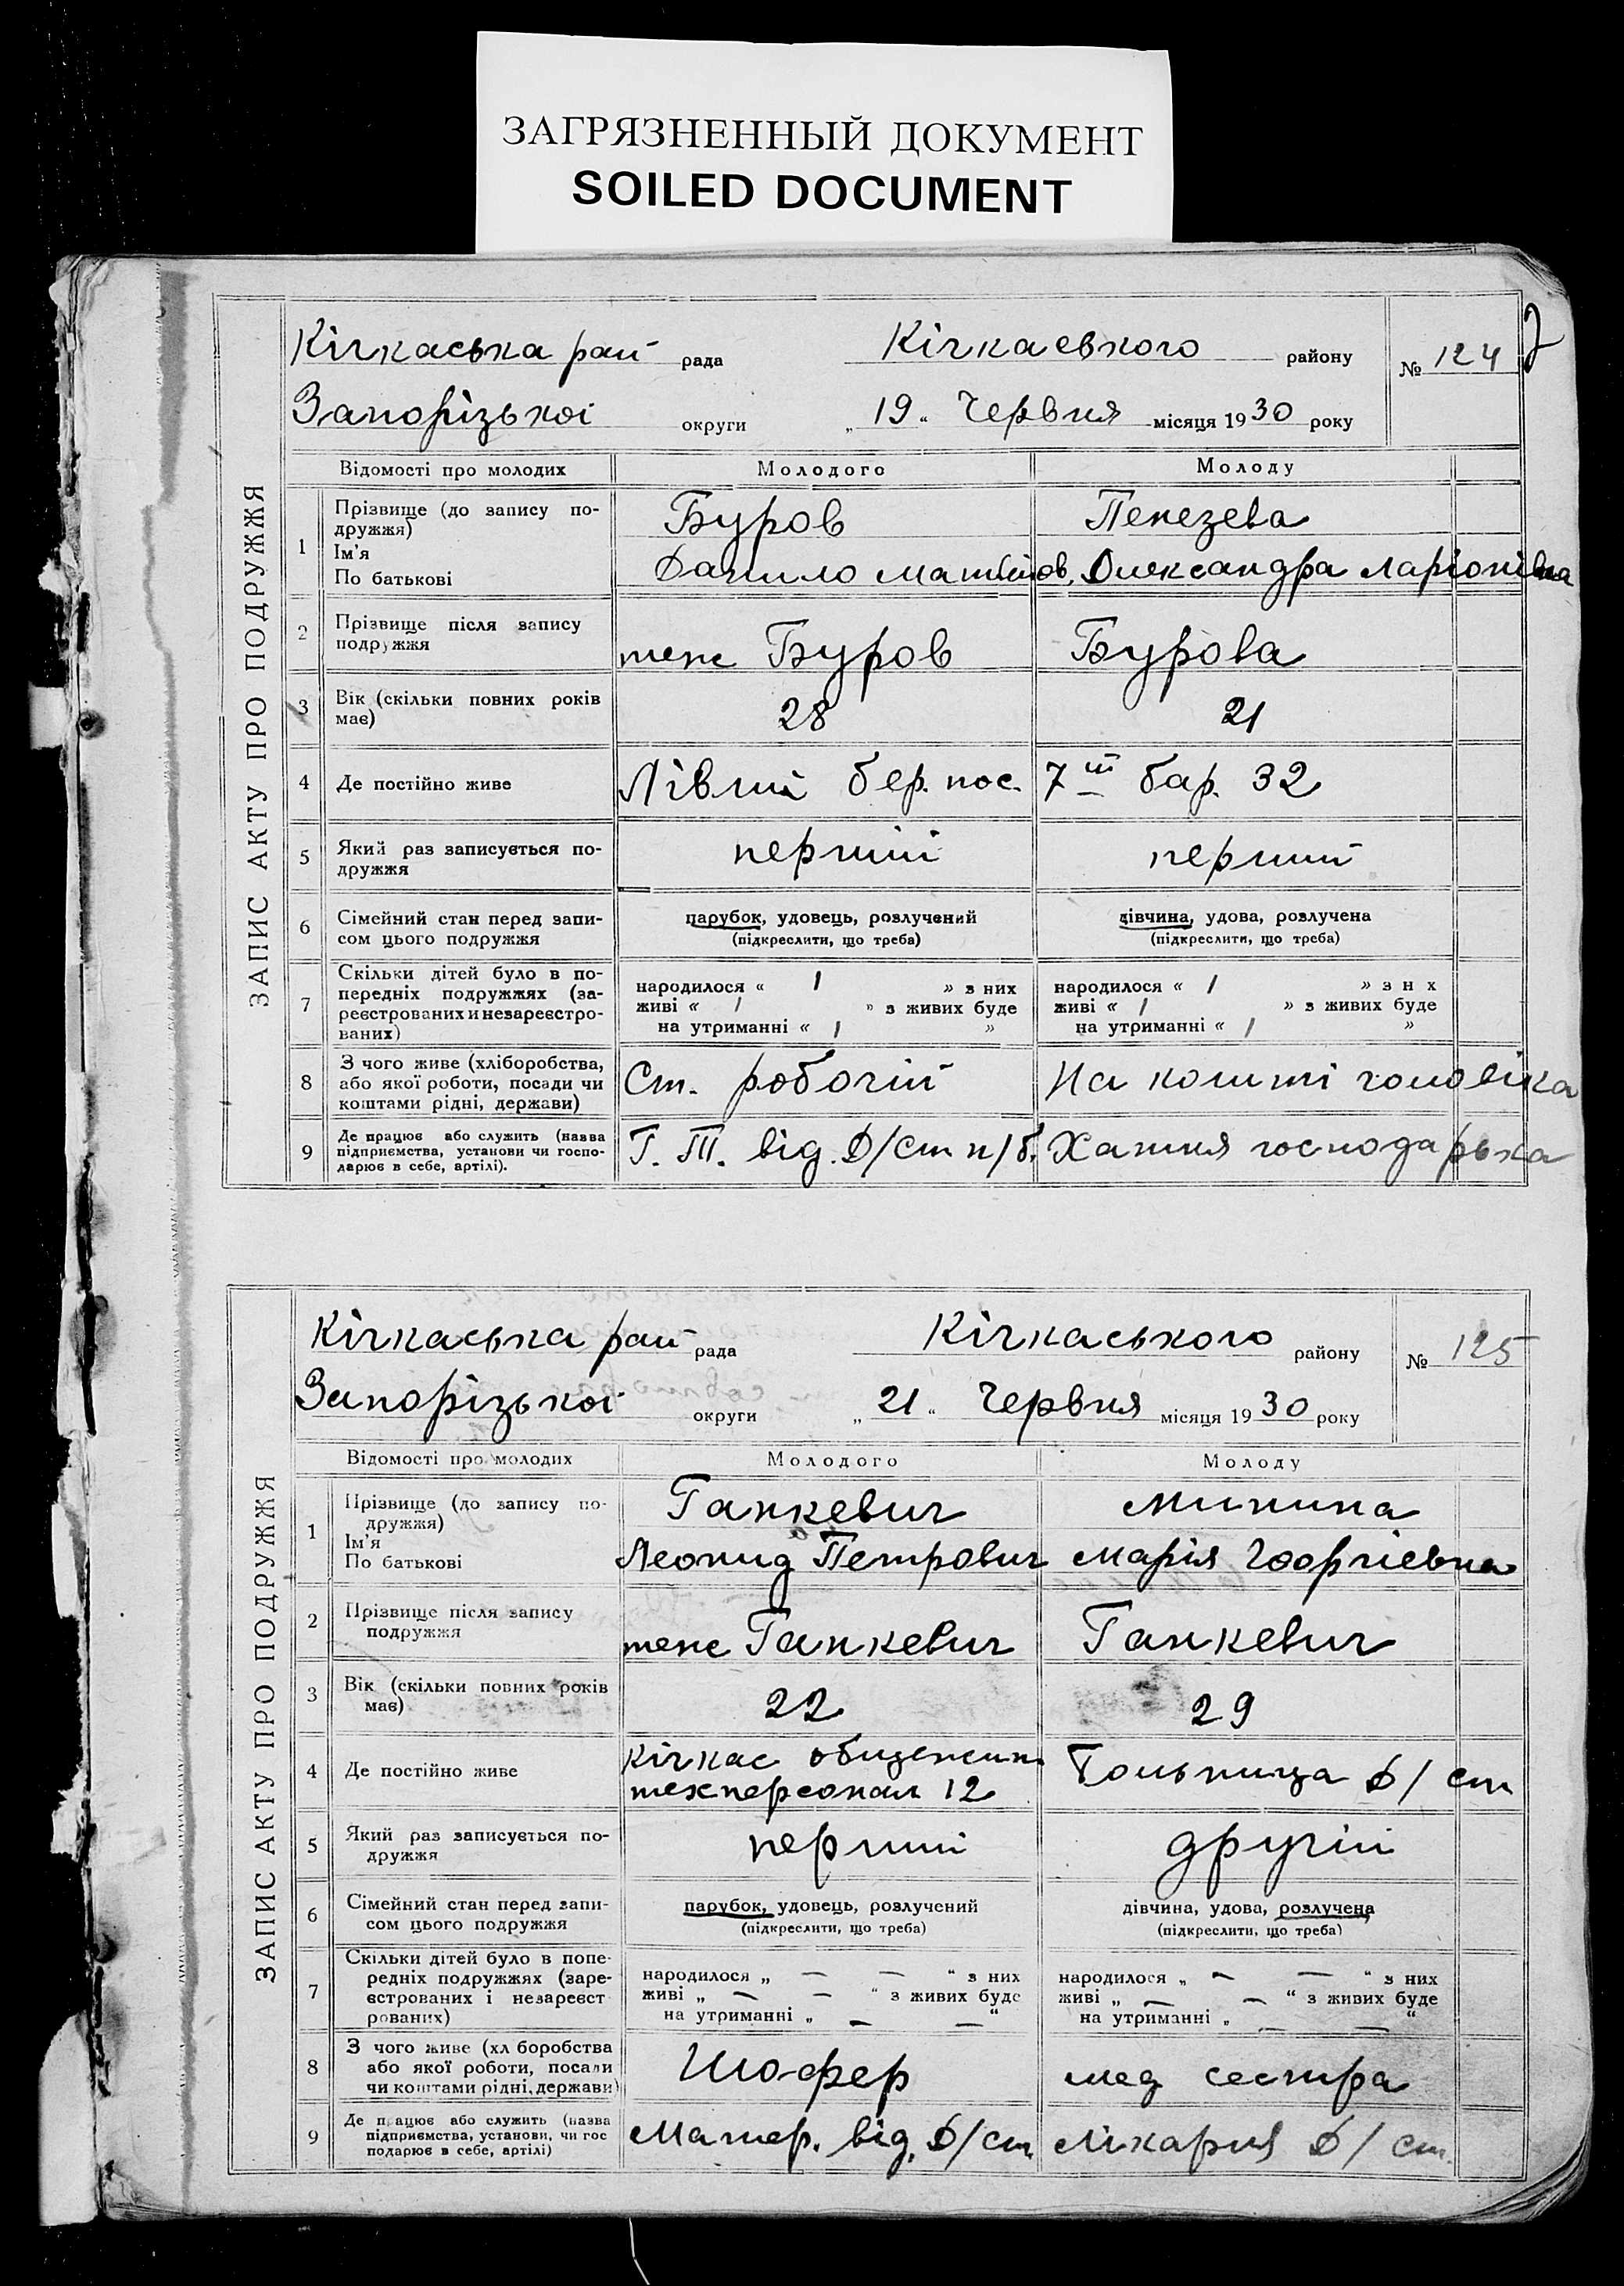 ЗАГРЯЗНЕННЫЙ ДОКУМЕНТ
SOILED DOCUMENT
ЗАПИС АКТУ ПРО ПОДРУЖЖЯ
Кічкаська рай рада Кічкаського району № 124
Запорізькоі округи „ 19 “ Червня місяця 1930 року
Відомості про молодих Молодого Молоду
1 Прізвище (до запису по-
дружжя)
Ім'я
По батькові
Буров Пенезева
Данило Матвійов. Олександра Ларіонівна
2 Прізвище після запису
подружжя
теж Буров Бурова
3 Вік (скільки повних років
має)
28 21
4 Де постійно живе Лівий бер. пос. 7ий бар. 32
5 Який раз записується по-
дружжя
перший перший
6 Сімейний стан перед запи-
сом цього подружжя
парубок, удовець, розлучений
(підкреслити, що треба)
дівчина, удова, розлучена
(підкреслити, що треба)
7 Скільки дітей було в по-
передніх подружжях (за-
реєстрованих и незареєстро-
ваних)
народилося « / » з них
живі « / » з живих буде
на утриманні « / »
народилося « / » з н х
живі « / » з живих буде
на утриманні « / »
8 З чого живе (хліборобства,
або якої роботи, посади чи
коштами рідні, держави)
Ст. робочій На кошті чоловіка
9 Де працює або служить (назва
підприємства, установи чи госпо-
дарює в себе, артілі).
Г. Т. від. Д/ст п/б. Хатня господарька
ЗАПИС АКТУ ПРО ПОДРУЖЖЯ
Кічкаська рай рада Кічкаського району № 125
Запорізькоі округи „ 21 “ Червня місяця 1930 року
Відомості про молодих Молодого Молоду
1 Прізвище (до запису по-
дружжя)
Ім'я
По батькові
Ганкевич Минина
Леонид Петрович Марія Георгіевна
2 Прізвище після запису
подружжя
теж Ганкевич Ганкевич
3 Вік (скільки повних років
має)
22 29
4 Де постійно живе
Кічкас общежит
техперсонал 12
Больница Д/ст
5 Який раз записується по-
дружжя
перший другій
6 Сімейний стан перед запи-
сом цього подружжя
парубок, удовець, розлучений
(підкреслити, що треба)
дівчина, удова, розлучена
(підкреслити, що треба)
7 Скільки дітей було в попе-
редніх подружжях (заре-
єстрованих і незареєст
рованих)
народилося „ — — “ з них
живі „ — — “ з живих буде
на утриманні „ — — “
народилося „ — — “ з них
живі „ — — “ з живих буде
на утриманні „ — — “
8 З чого живе (хл боробства
або якої роботи, посади
чи коштами рідні, держави)
Шофер мед сестра
9 Де працює або служить (назва
підприємства, установи, чи гос
подарює в себе, артілі)
Матер. від. Д/ст Лікарня Д/ст.